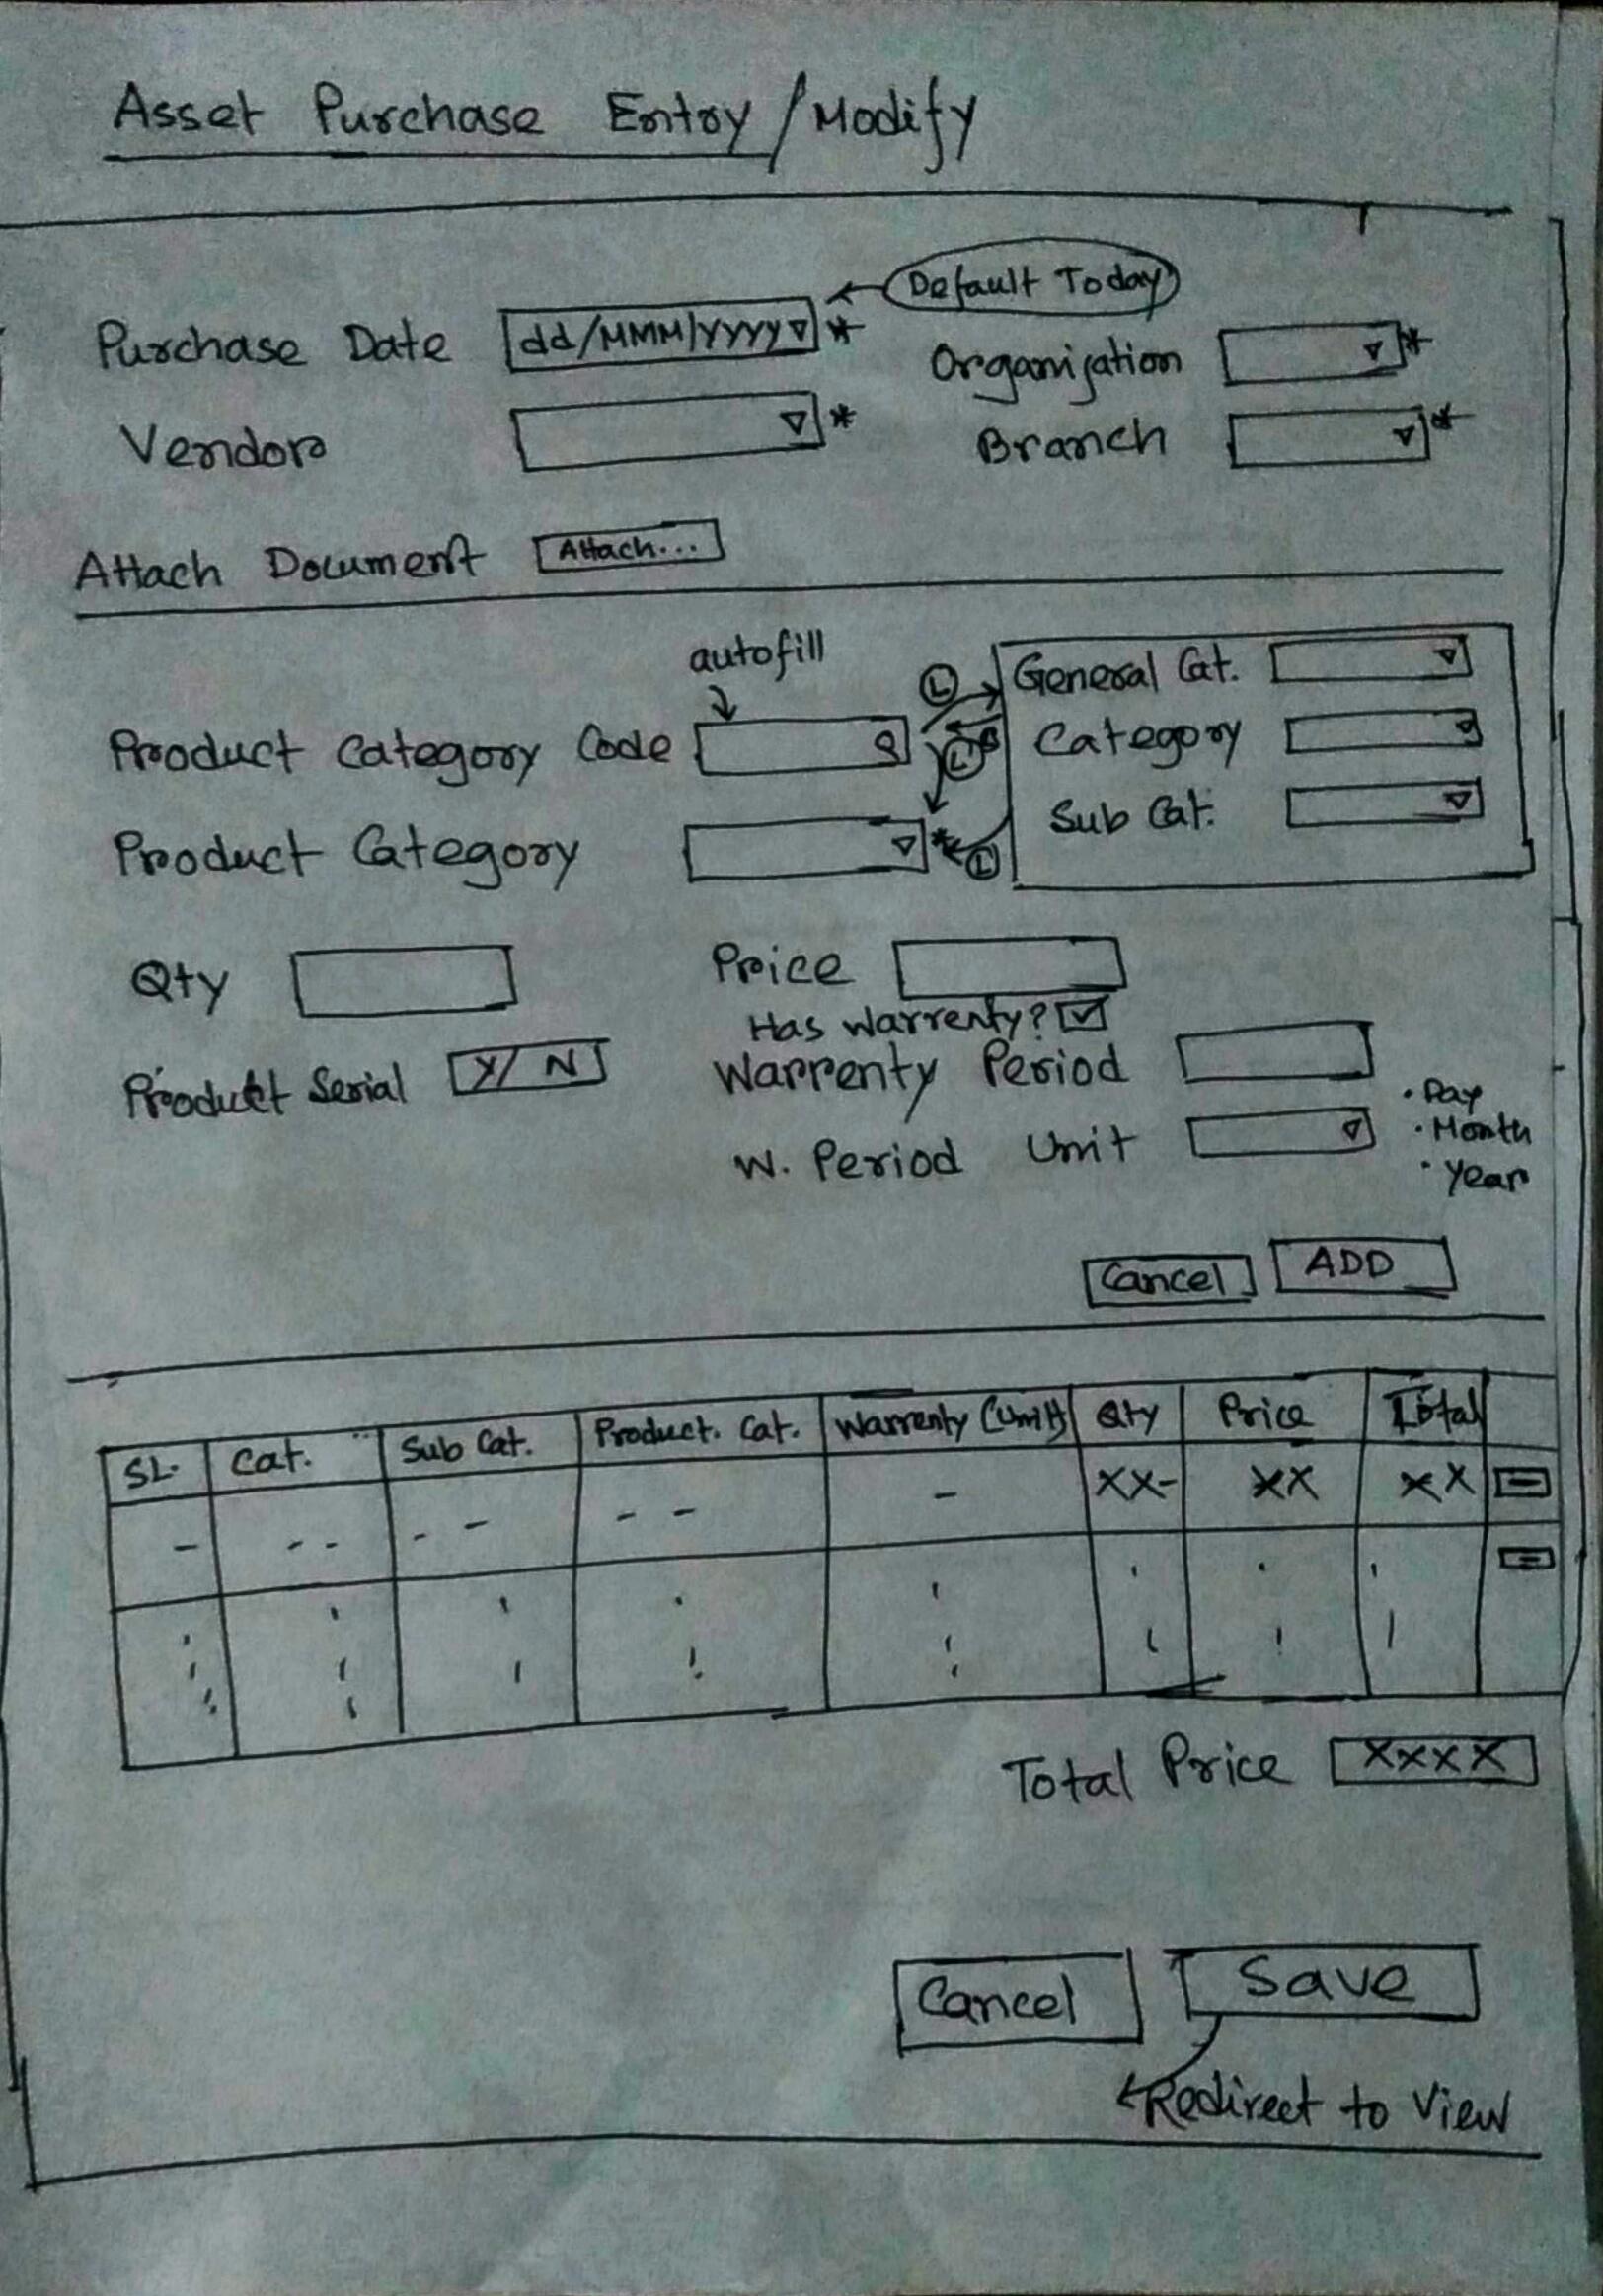 Asset Purchase Entry / Modify
Default Today
Purchase Date dd/MMM/yyyy * Organisation *
Vendor * Branch *
Attach Document Attach...
autofill
General Cat.
Product Category Code Category
Sub Cat.
Product Category *
Qty Price
Has Warrenty?
Product Serial Y/N Warrenty Period
W. Period Unit
· Day
· Month
· Year
Cancel ADD
SL. Cat. Sub Cat. Product. Cat. Warrenty (Unit) Qty Price Total
- -- -- -- - XX- XX XX
Total Price XXXX
Cancel Save
Redirect to View